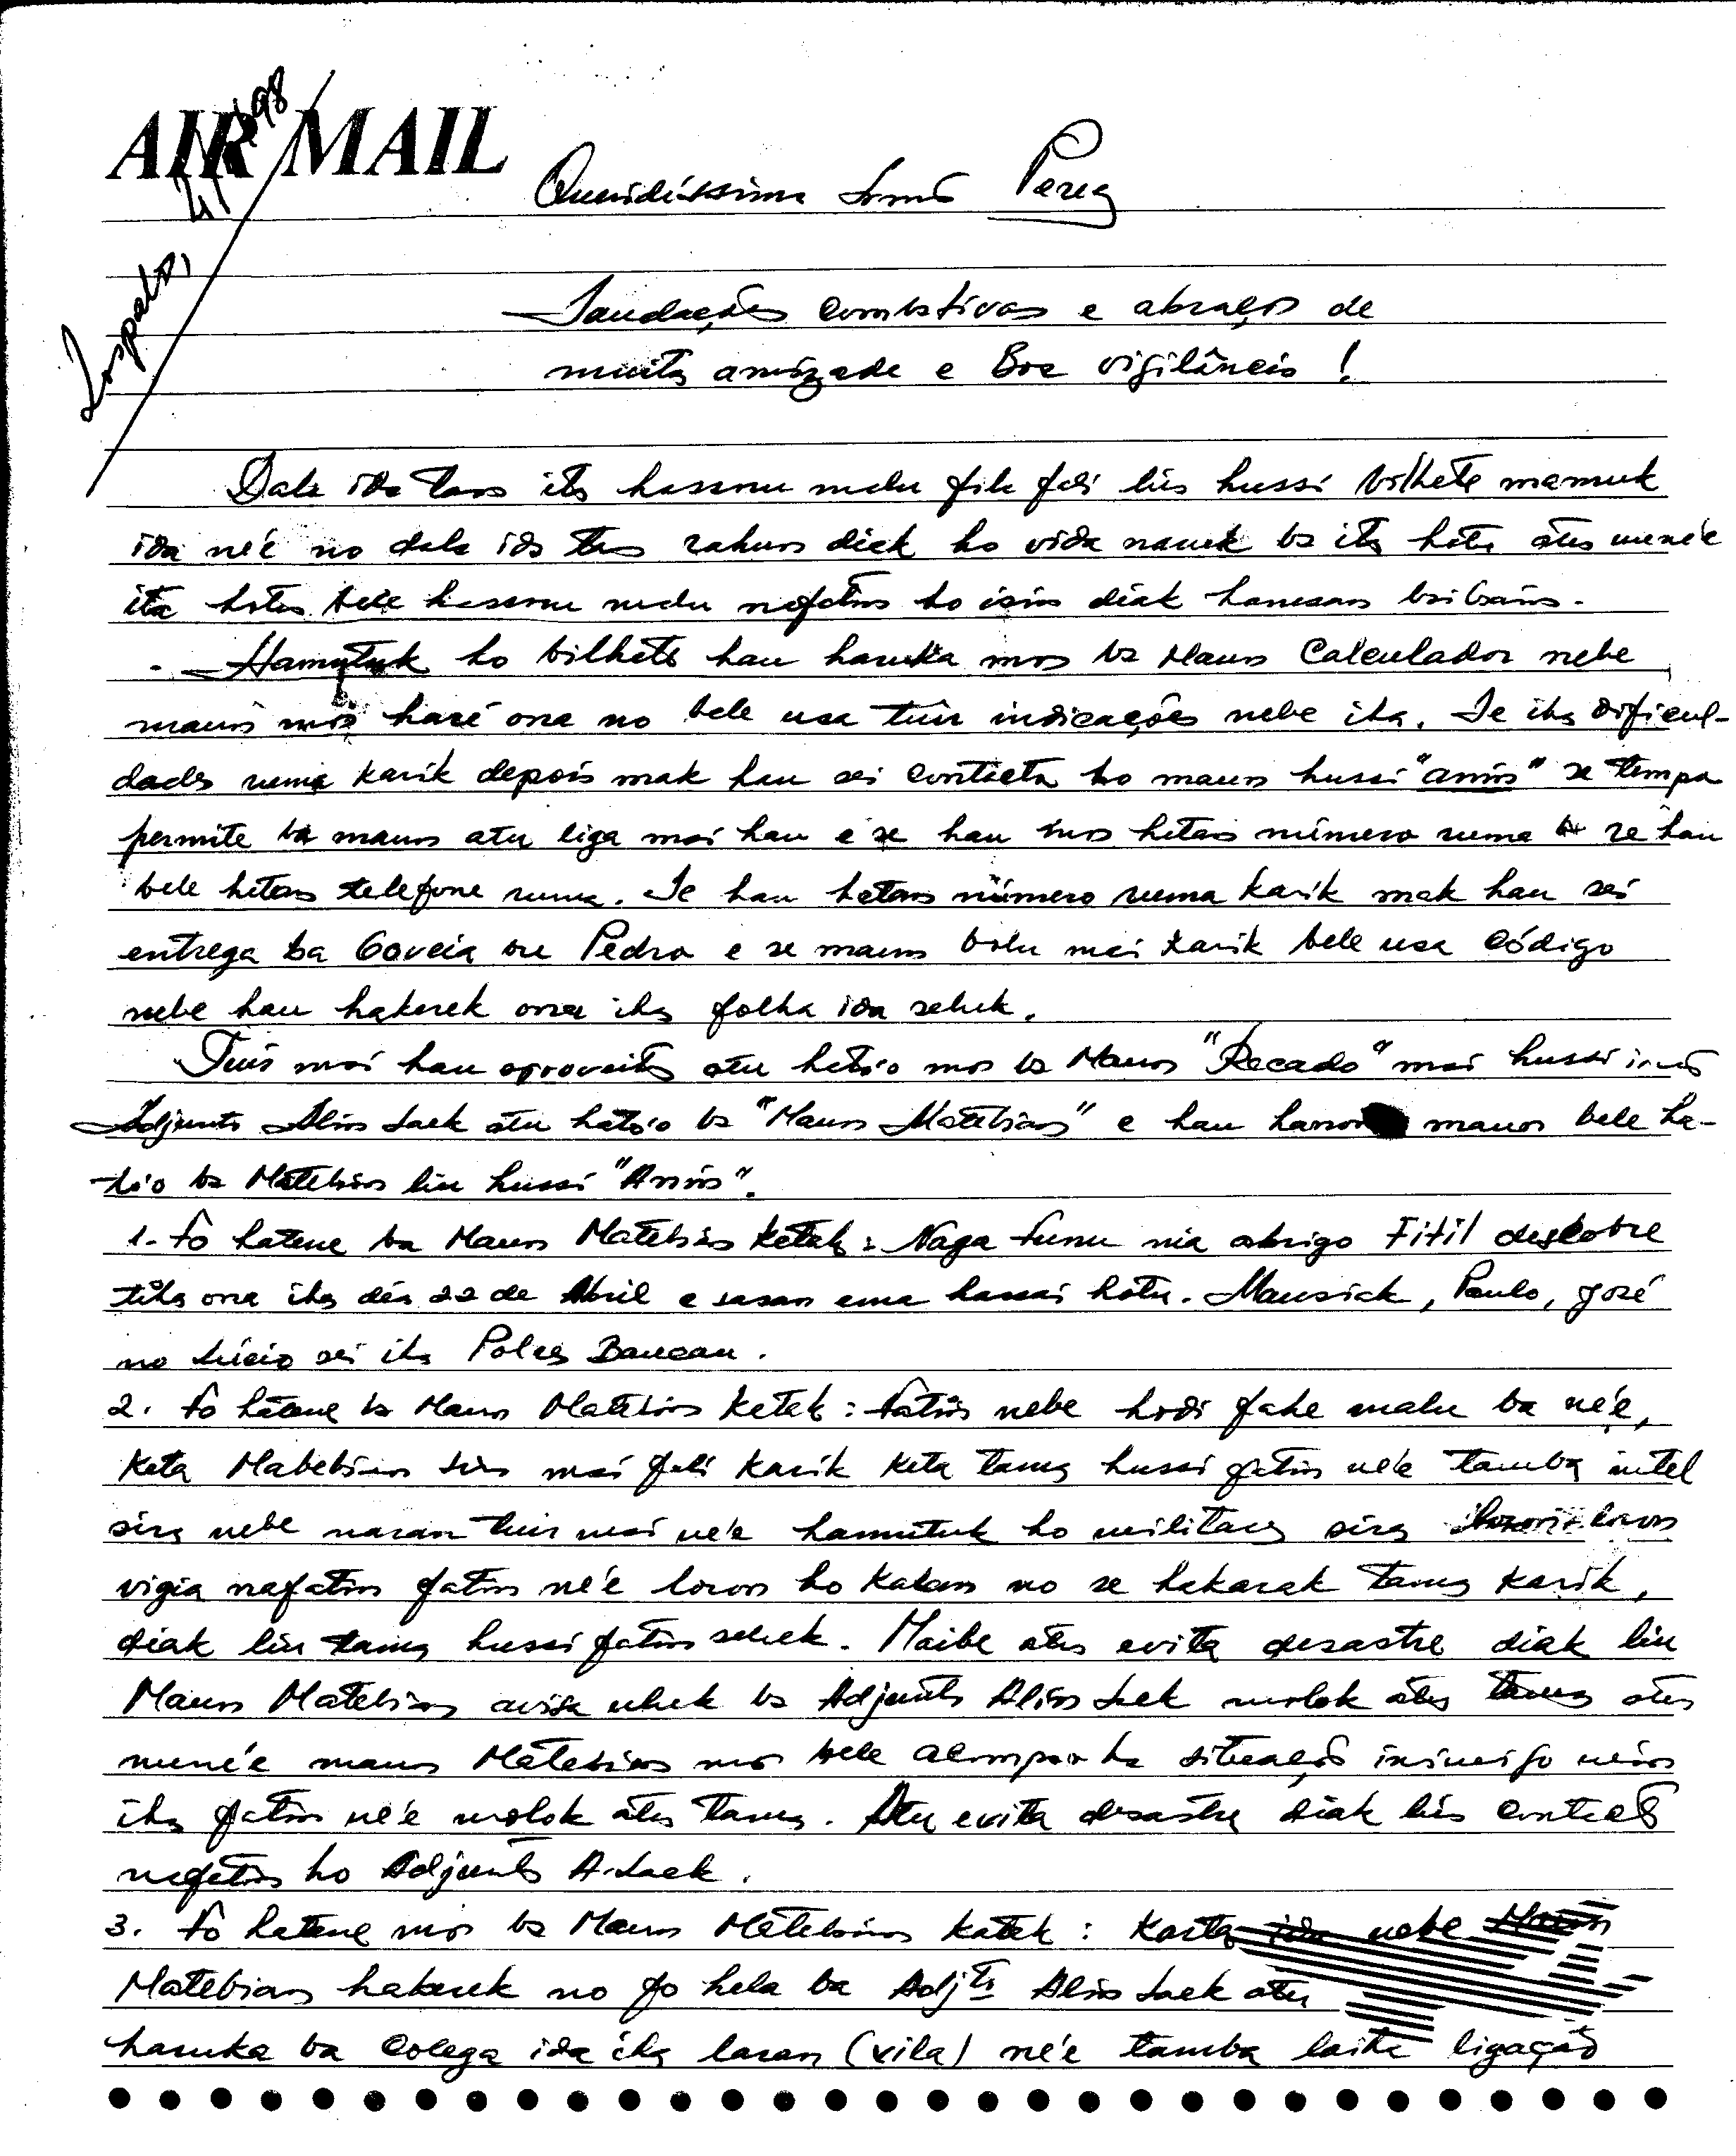 AIR MAIL
Lospalos, 4/ /98
Queridíssimo Irmão Perez
Saudações combativas e abraços de
muita amizade e Boa vigilância !
Dala ida tan ita hasoru malu fila fali liu hussi bilhete mamuk
ida né'e no dala ida tan rahun diak ho vida naruk ba ita hotu atu nuné'e
ita hotu bele hasoru malu nafatin ho isin diak hanesan baibain.
- Hamutuk ho bilhete hau haruka mos ba Maun Calculador nebe
maun mos haré ona no bele usa tuir indicações nebe iha. Se iha dificul-
dades ruma karik depois mak hau sei contacta ho maun hussi "anin" se tempo
permite ba maun atu liga mai hau e se hau mos hetan número ruma se hau
bele hetan telefone ruma. Se hau hetan número ruma karik mak hau sei
entrega ba Goveia ou Pedro e se maun bolu mai karik bele usa código
nebe hau hakerek ona iha folha ida seluk.
Tuir mai hau aproveita atu hato'o mos ba Maun "Recado" mai hussi irmão
Adjunto Alin Laek atu hato'o ba "Maun Matebian" e hau maun bele ha-
to'o ba Matebian liu hussi "Anin".
1. Fó hatene ba Maun Matebian katak: Naga Funu nia abrigo Fitil descobre
tiha ona iha dia 22 de Abril e sasan ema hassai hotu. Mausiak, Paulo, José
no Lúcio sei iha Polres Baucau.
2. Fó hatene ba Maun Matebian katak: fatin nebe hodi fahe malu ba né'e,
keta Matebian sira mai fali karik keta tama hussi fatin né'e tamba intel
sira nebe naran tuir mai né'e hamutuk ho militar sira loron
vigia nafatin fatin né'e loron ho kalan no se hakarak tama karik,
diak liu tama hussi fatin seluk. Maibe atu evita desastre diak liu
Maun Matebian avisa uluk ba Adjunto Alin Laek molok atu tama atu
nuné'e maun Matebian mos bele acompanha situação inimigo nian
iha fatin né'e molok atu tama. Atu evita desastre diak liu contacto
nafatin ho Adjunto A. Laek.
3. Fó hatene mos ba Maun Matebian katak: Karta ida nebe Maun
Matebian hakerek no fo hela ba Adjto Alin Laek atu
haruka ba Colega ida iha laran (vila) né'e tamba laiha ligação